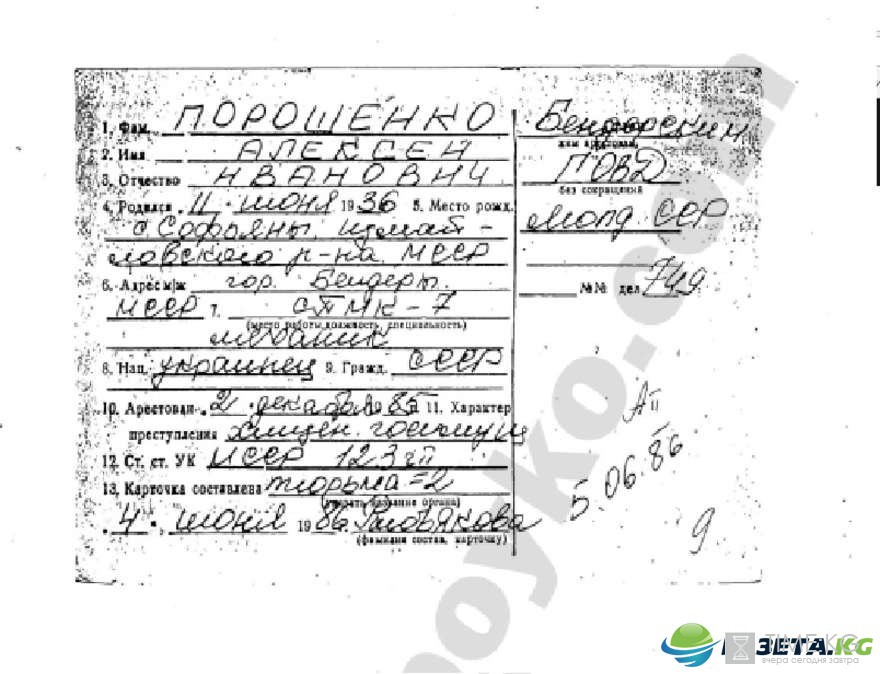 1. Фам. ПОРОШЕНКО
2. Имя АЛЕКСЕЙ
3. Отчество ИВАНОВИЧ
4. Родился 11 июня 1936 5. Место рожд.
с. Софьяны, Измаи-
ловского р-на, МССР
6. Адрес м/ж гор. Бендеры.
МССР 7. СПМК-7
(место работы, должность, специальность)
механик
8. Нац. украинец 9. Гражд. СССР
10. Арестован 2 декабря 1985 11. Характер
преступления хищен. госимущ
12. Ст. ст. УК МССР 123 ч II
13. Карточка составлена тюрьма=2
(указать название органа)
4. июня 1986.
(фамилия состав. карточку)
Бендерский
кем арестован,
ГОВД
без сокращений
Молд. ССР
№№ дел 7419
А II
5.06.86
9.
oyko.com
ГАЗЕТА.KG
TIME.KG
вчера сегодня завтра